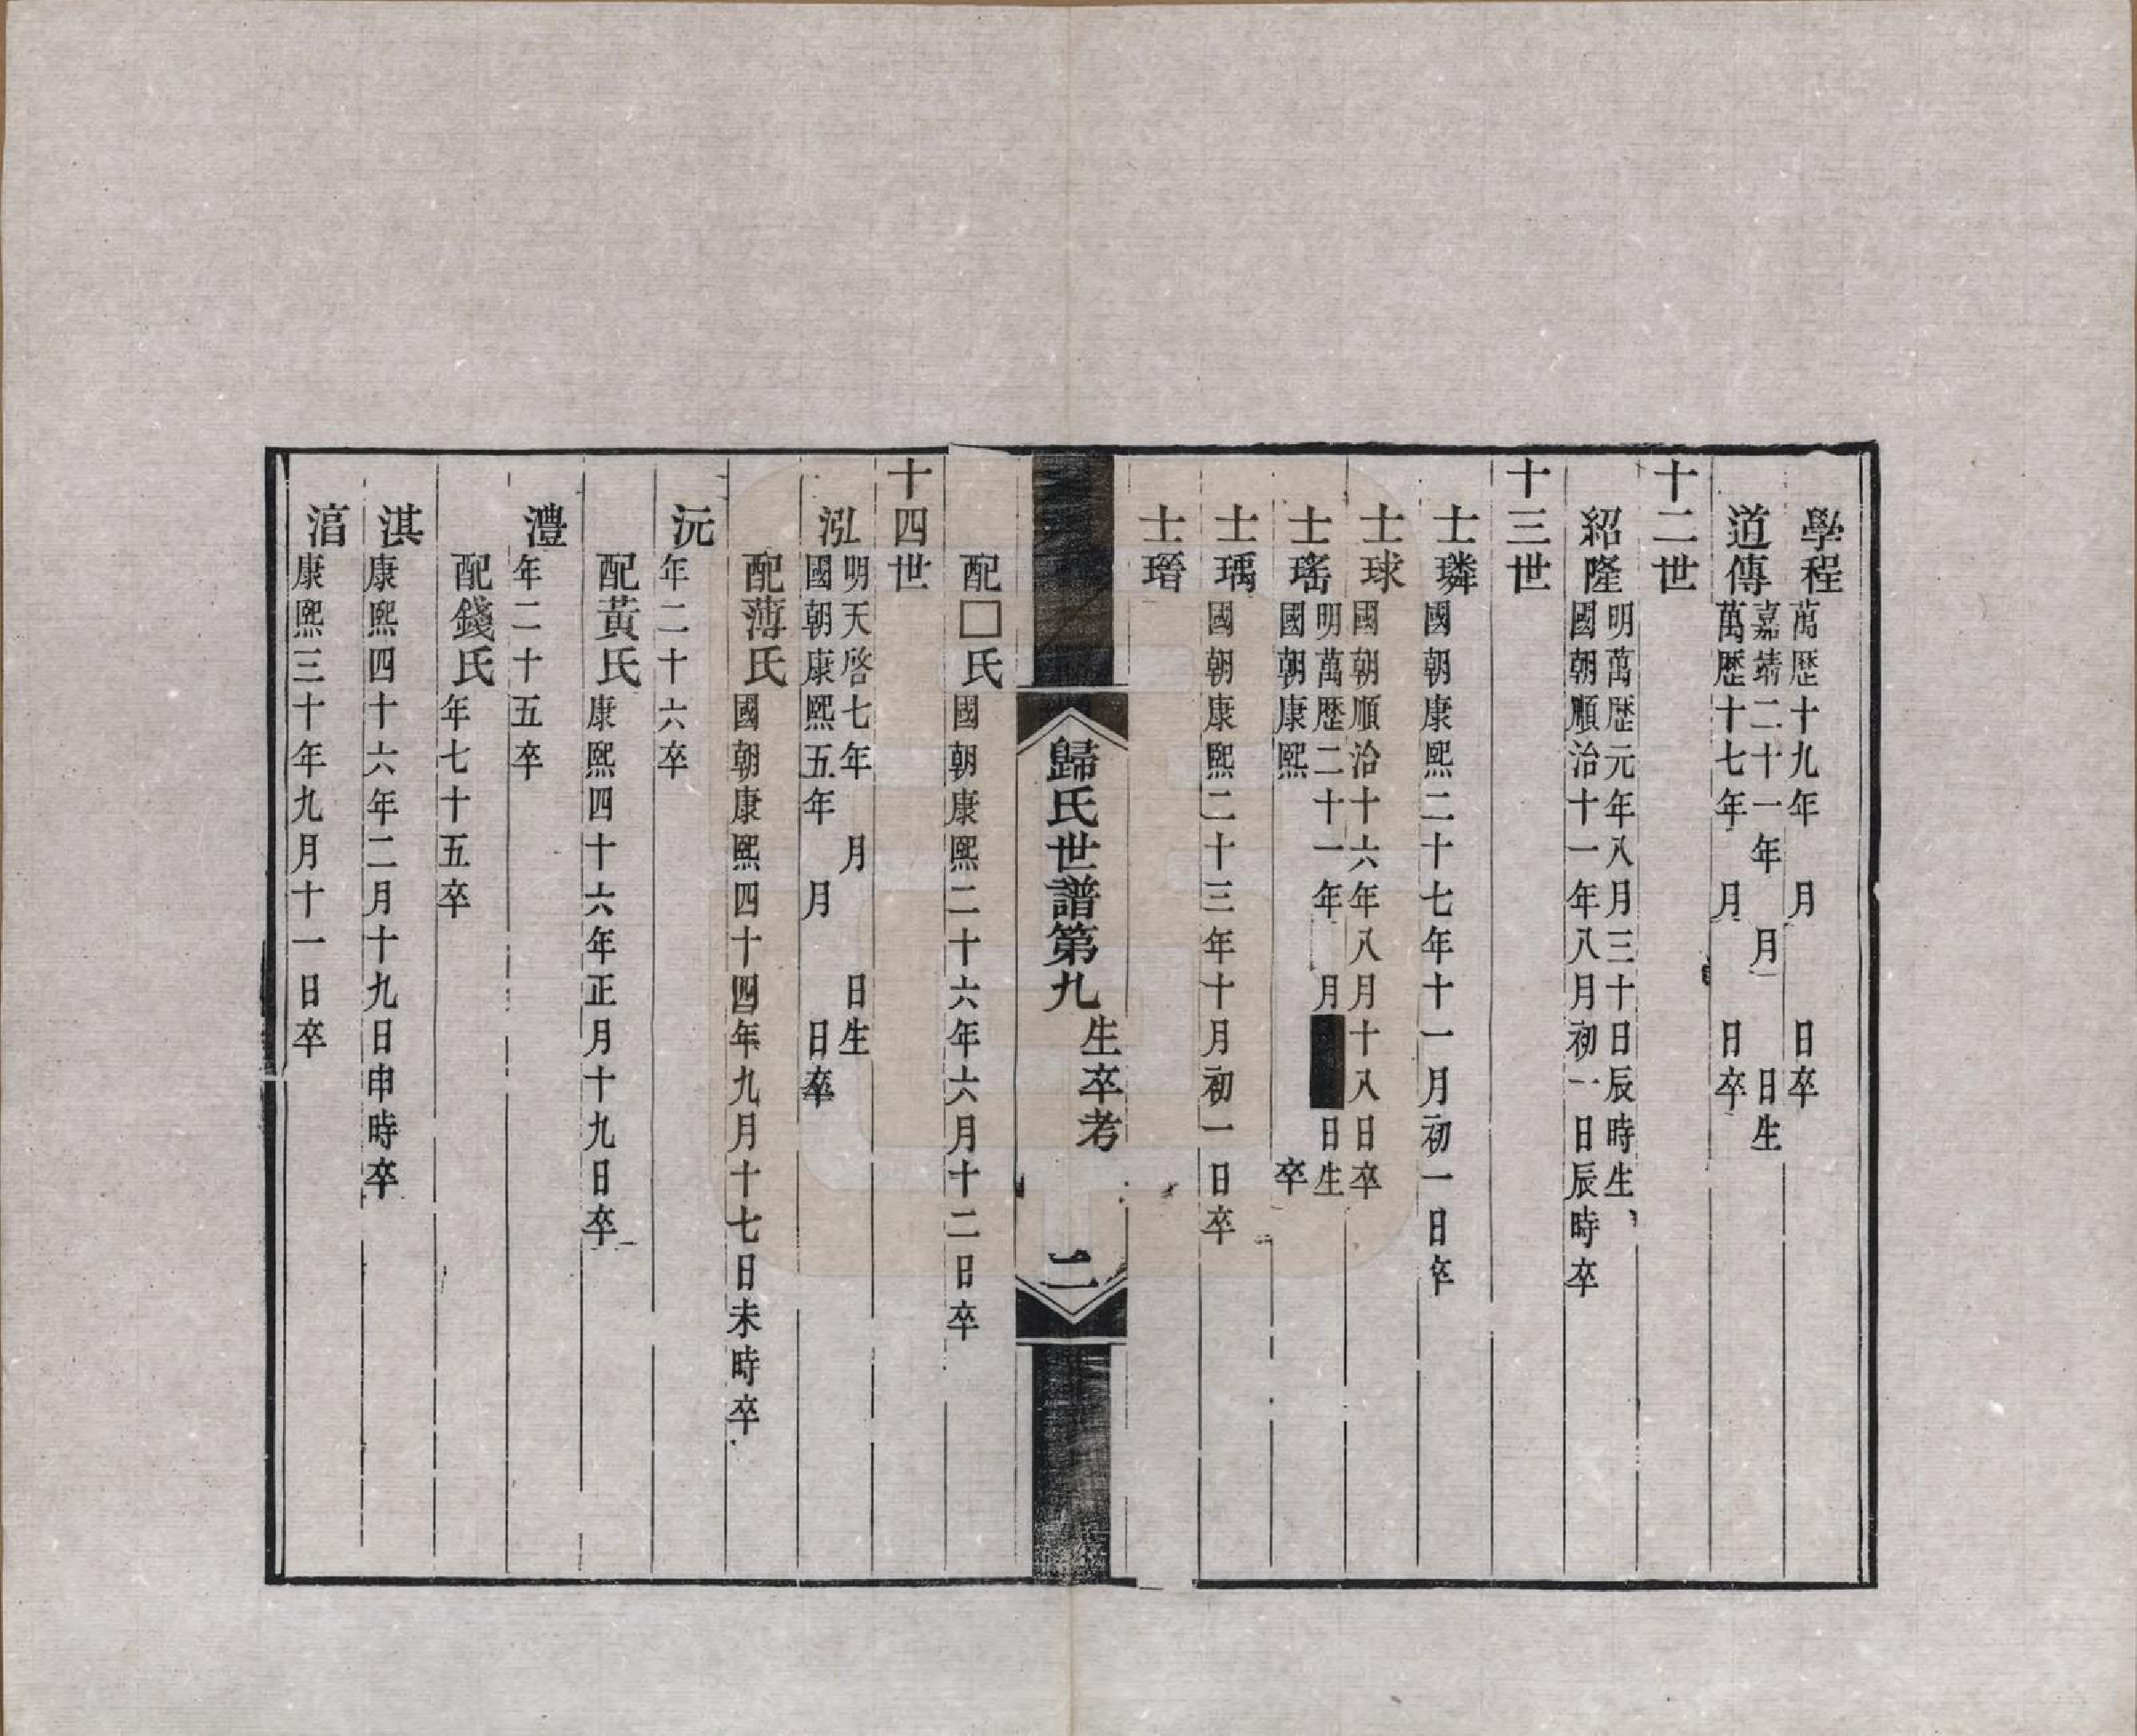 學程萬歷十九年　月　日卒
道傳嘉靖二十一年　月　日生
萬歷十七年　月　日卒
十二世
紹隆明萬歷元年八月三十日辰時生
國朝順治十一年八月初一日辰時卒
十三世
士璘國朝康熙二十七年十一月初一日卒
士球國朝順治十六年八月十八日卒
士瑤明萬歷二十一年　月　日生
國朝康熙　卒
士瑀國朝康熙二十三年十月初一日卒
士瑨
歸氏世譜第九　生卒考　二
配□氏國朝康熙二十六年六月十二日卒
十四世
泓明天啓七年　月　日生
國朝康熙五年　月　日卒
配薄氏國朝康熙四十四年九月十七日未時卒
沅年二十六卒
配黃氏康熙四十六年正月十九日卒
澧年二十五卒
配錢氏年七十五卒
淇康熙四十六年二月十九日申時卒
湻康熙三十年九月十一日卒